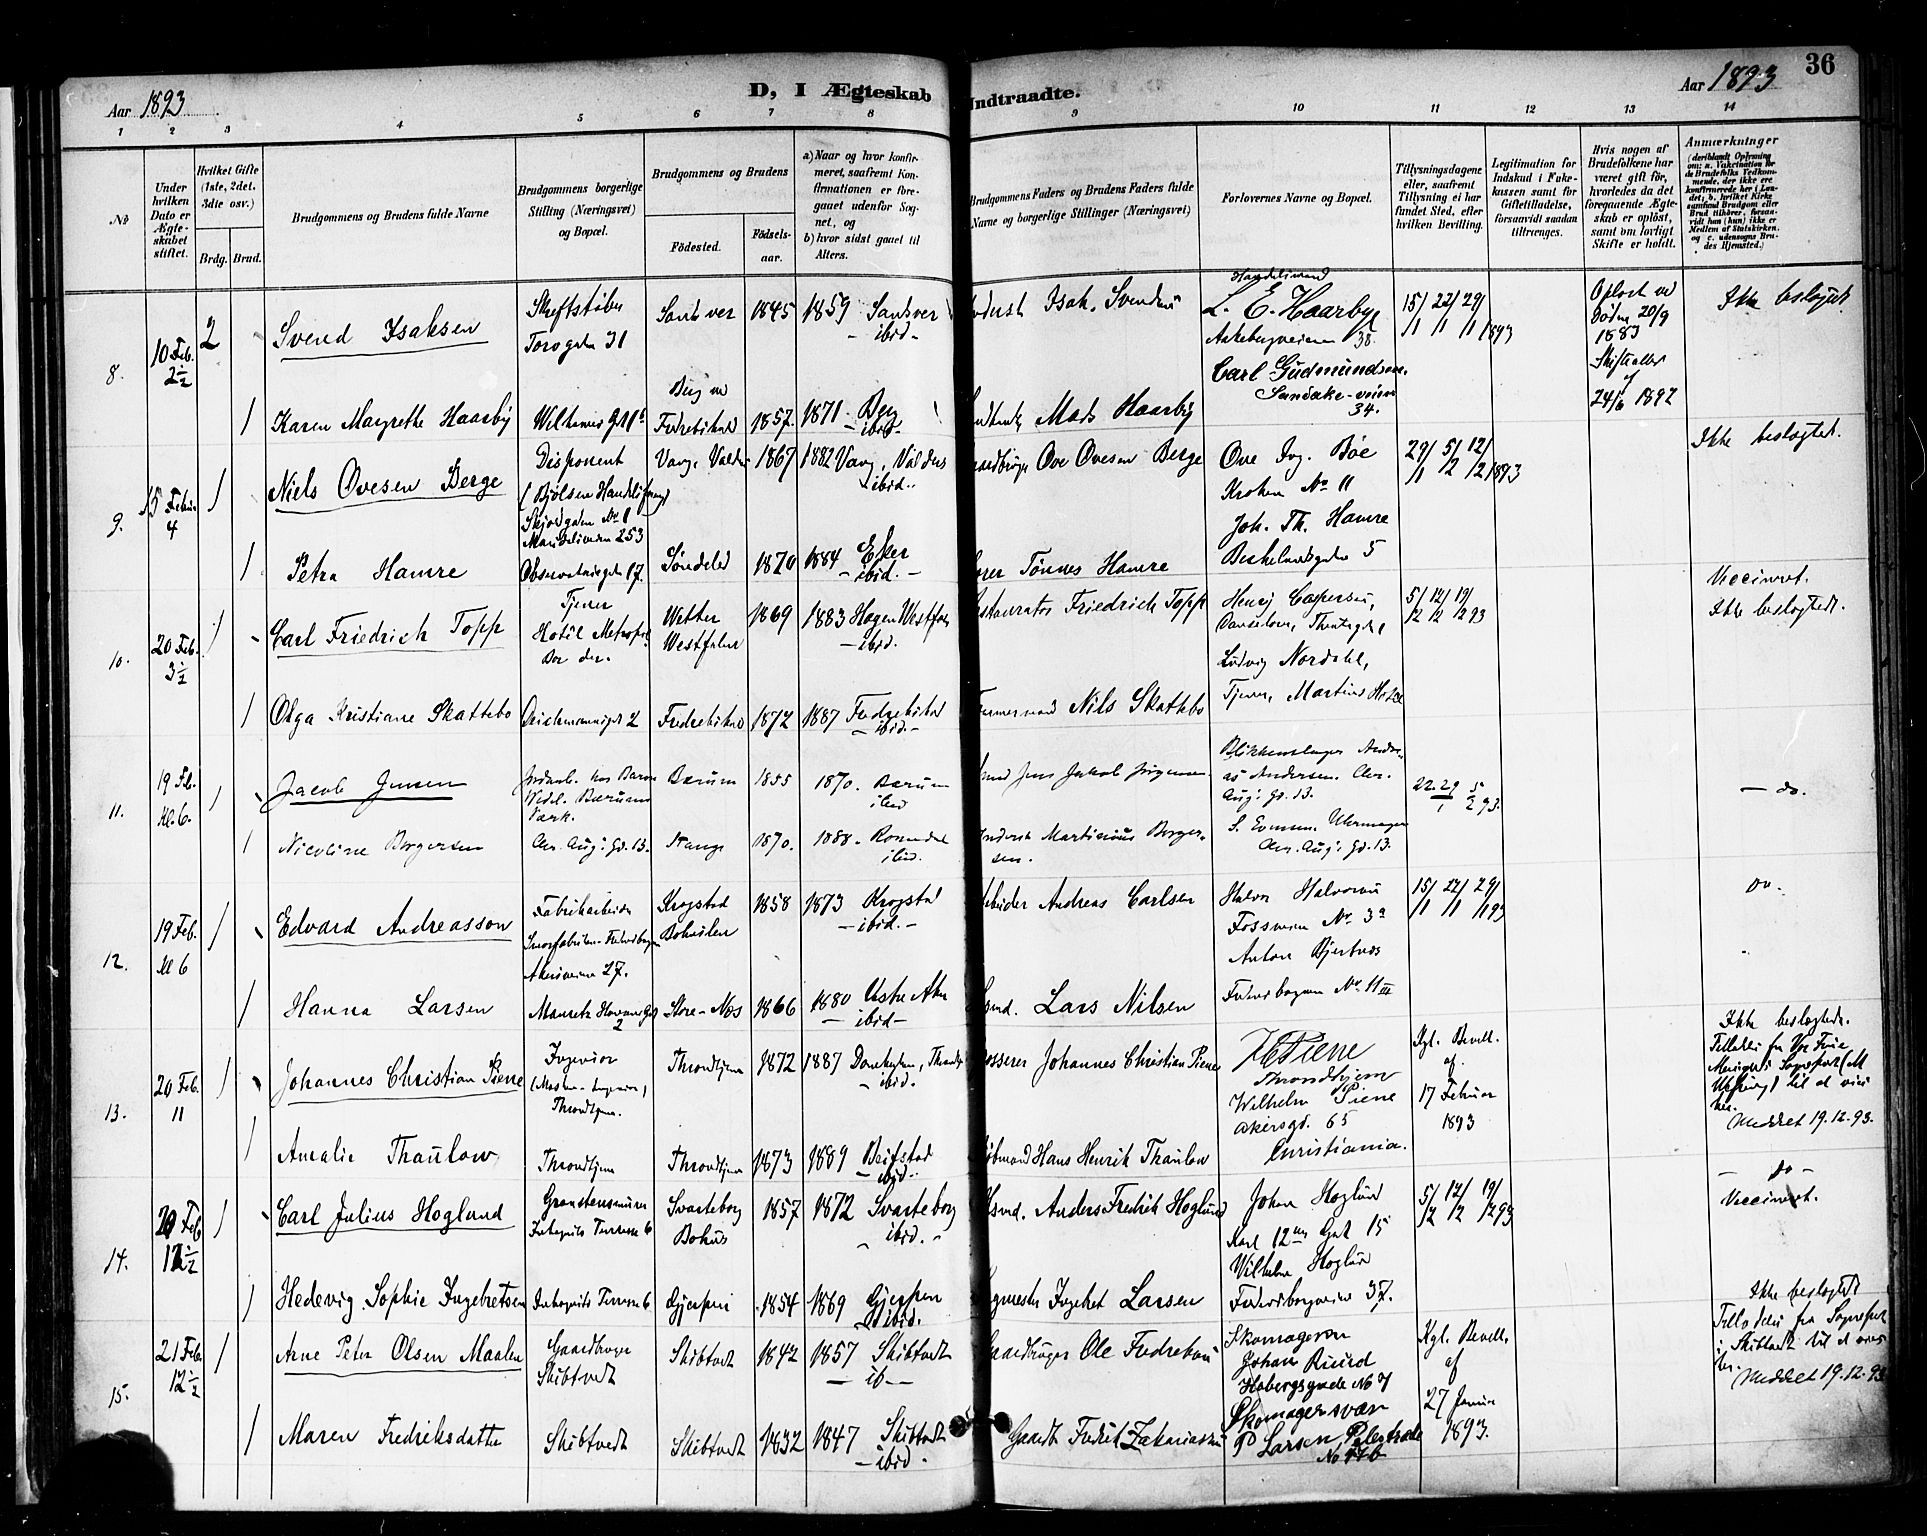 Aar 1893
D, I Ægteskab Indtraadte.
Aar 1893
36
1 2 3 4 5 6 7 8 9 10 11 12 13 14
No
Under hvilken Dato er Ægteskabet stiftet.
Hvilket Gifte (1ste, 2det. 3die osv.)
Brdg. Brud.
Brudgommens og Brudens fulde Navne
Brudgommens borgerlige Stilling (Næringsvei) og Bopæl.
Brudgommens og Brudens
Födested.
Födselsaar.
a) Naar og hvor konfirmeret, saafremt Konfirmationen er foregaaet udenfor Sognet, og
b) hvor sidst gaaet til Alters.
Brudgommens Faders og Brudens Faders fulde Navne og borgerlige Stillinger (Næringsvei)
Forlovernes Navne og Bopæl.
Tillysningsdagene eller, saafremt Tillysning ei har fundet Sted, efter hvilken Bevilling.
Legitimation for Indskud i Fukekassen samt for Giftetilladelse, forsaavidt saadan tiltrænges.
Hvis nogen af Brudefolkene har været gift för, hvorledes da det foregaaende Ægteskab er oplöst, samt om lovligt Skifte er holdt.
Anmærkninger
8. 10 Feb. 2½ 2
Svend Isaksen
Skriftstøber
Torvgaden 31
Sandsver 1845 1859 Sandsver
— ibid.
Isak Svendsen
Handelsmand
L. E. Haarby
Akebergveien 38.
Carl Gudmundsen.
Sandake-veien 34.
15/1 22/1 29/1 1893
Opløst ved Døden 20/9 1883
24/6 1892
Ikke beslægtet.
1 Karen Magrethe Haarby
Berg ved Fredrikshald 1857. 1871 Berg
— ibid.
Mads Haarby
9. 15 Februar 4 1
Niels Ovesen Berge
Disponent
Vang, Valdres 1867 1882 Vang, Valdres
ibid.
Gaardbruger Ove Ovesen Berge
Ove Ing. Bøe
Kroken No 11
Joh. Th. Hamre
29/1 5/2 12/2 1893
Ikke beslægtet.
1 Petra Hamre
Observatoriegaden 17.
Søndeled 1870 1884 Eker
— ibid. —
Tønnes Hamre
5
10. 20 Feb. 3½ 1
Carl Friedrich Topp
Tjener
Hotel Metropol
Bor der.
Wetter Westfalen 1869 1883 Hagen Westfalen
— ibid.
Restauratør Friedrich Topp
Henrij Caspersen,
Ludvig Nordahl,
Tjener, Martins Hotel
5/2 12/2 19/2 93
Vaccineret.
Ikke beslægtede.
1 Olga Kristiane Skattebo
Deichmannsgd 2
Fredrikshald 1872 1887 Fredrikshald
— ibid. —
Nils Skattebo
11. 19 Feb. Kl. 6. 1
Jacob Jensen
Jordarb. hos Baron Wedel. Bærums Værk.
Bærum 1855 1870. Bærum
ibid
Jens Jakob Jørgensen
Blikkenslager Andreas Andersen. Chr. Aug: Gd. 13.
S. Evensen, Uhrmager
Chr. Aug: Gd. 13.
22. 29/1 5/2 93.
— do.
1 Nicoline Borgersen
Chr. Aug: Gd. 13.
Stange 1870. 1888. Romedal
ibid.
Martinius Borgersen.
12. 19 Feb. Kl 6 1
Edvard Andreasson
Fabrikarbeider
Akersveien 27.
Krogstad Bohuslen 1858 1873 Krogstad
— ibid. —
Arbeider Andreas Carlsen
Halvor Halvorsen
Fossveien No 3a
Anton Bjertnes
Fredensborgveien No 11 III
15/1 22/1 29/1 93
do.
1 Hanna Larsen
Maurits Hansens Gd 2
Store-Næs 1866 1880 Vestre Aker
— ibid —
Husmd. Lars Nilsen
13. 20 Feb. 11 1
Johannes Christian Piene
Ingeniør
(Maskin-Ingeniør)
Throndhjem.
Throndhjem 1872 1887 Domkirken, Throndhjem
— ibid.
Grosserer Johannes Christian Piene
Piene
Throndhjem
Wilhelm Piene
Akersgd. 65
Christiania.
Kgl. Bevill. af 17 Februar 1893
Ikke beslægtede.
Meddelt 19.12.93.
1 Amalie Thaulow
Throndhjem Throndhjem 1873 1889 Beitstad
— ibid.
Kjøbmand Hans Henrik Thaulow
14. 20 Feb 12½ 1
Carl Julius Hoglund
Svarteborg Bohus 1857 1872 Svarteborg
ibid.
Husmd. Anders Fredrik Hoglund
Johan Hoglund
Karl 12tes Gade 15
Wilhelm Hoglund
Fredensborgveien 37.
5/2 12/2 19/2 93
— do —
Vaccineret.
1 Hedevig Sophie Ingebretsen
Gjerpen 1854 1869 Gjerpen
ibid.
Ingebret Larsen
15. 21 Feb. 12½ 1
Arne Peter Olsen Maalen
Gaardbruger
Skibtvedt
Skibtvedt 1842 1857 Skibtvedt
— ib —
Gaardbruger Ole Fredriksen
Skomagersven
Johan Ruud
Hobergsgade No 7
Skomagersvæn
P Larsen Pilestræde
No 44b
Kgl. Bevill. af 27 Januar 1893.
Ikke beslægtede
Tilladelse fra Sognepræst i Skibtvedt til at vies her.
Meddelt 19.12.93
1 Maren Fredriksdatter
Skibtvedt Skibtvedt 1832 1847 Skibtvedt
— ibid.
Gaardb. Fredrik Zakariassen